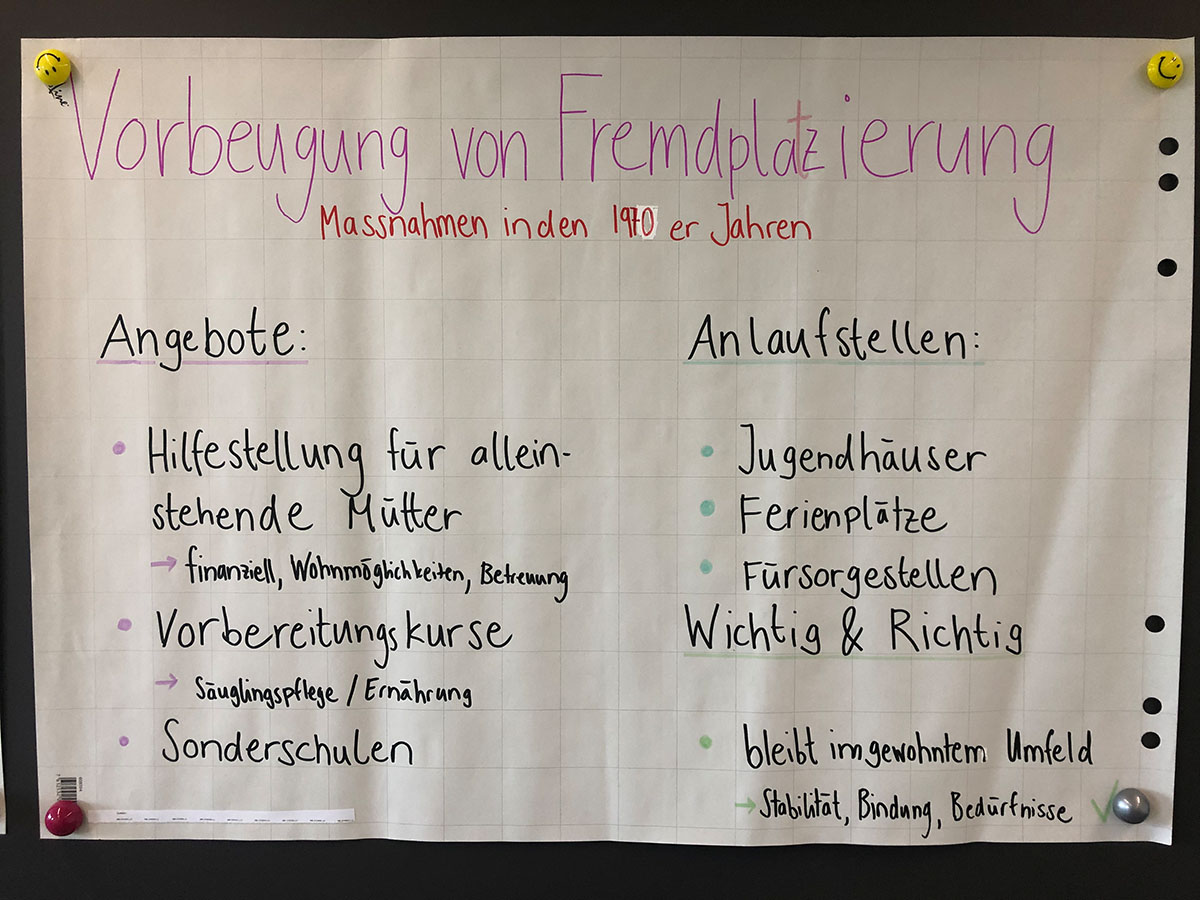 Vorbeugung von Fremdplatzierung
Massnahmen in den 1970er Jahren
Angebote:
• Hilfestellung für allein-
stehende Mütter
→ finanziell, Wohnmöglichkeiten, Betreuung
• Vorbereitungskurse
→ Säuglingspflege / Ernährung
• Sonderschulen
Anlaufstellen:
• Jugendhäuser
• Ferienplätze
• Fürsorgestellen
Wichtig & Richtig
• bleibt im gewohntem Umfeld
→ Stabilität, Bindung, Bedürfnisse ✓